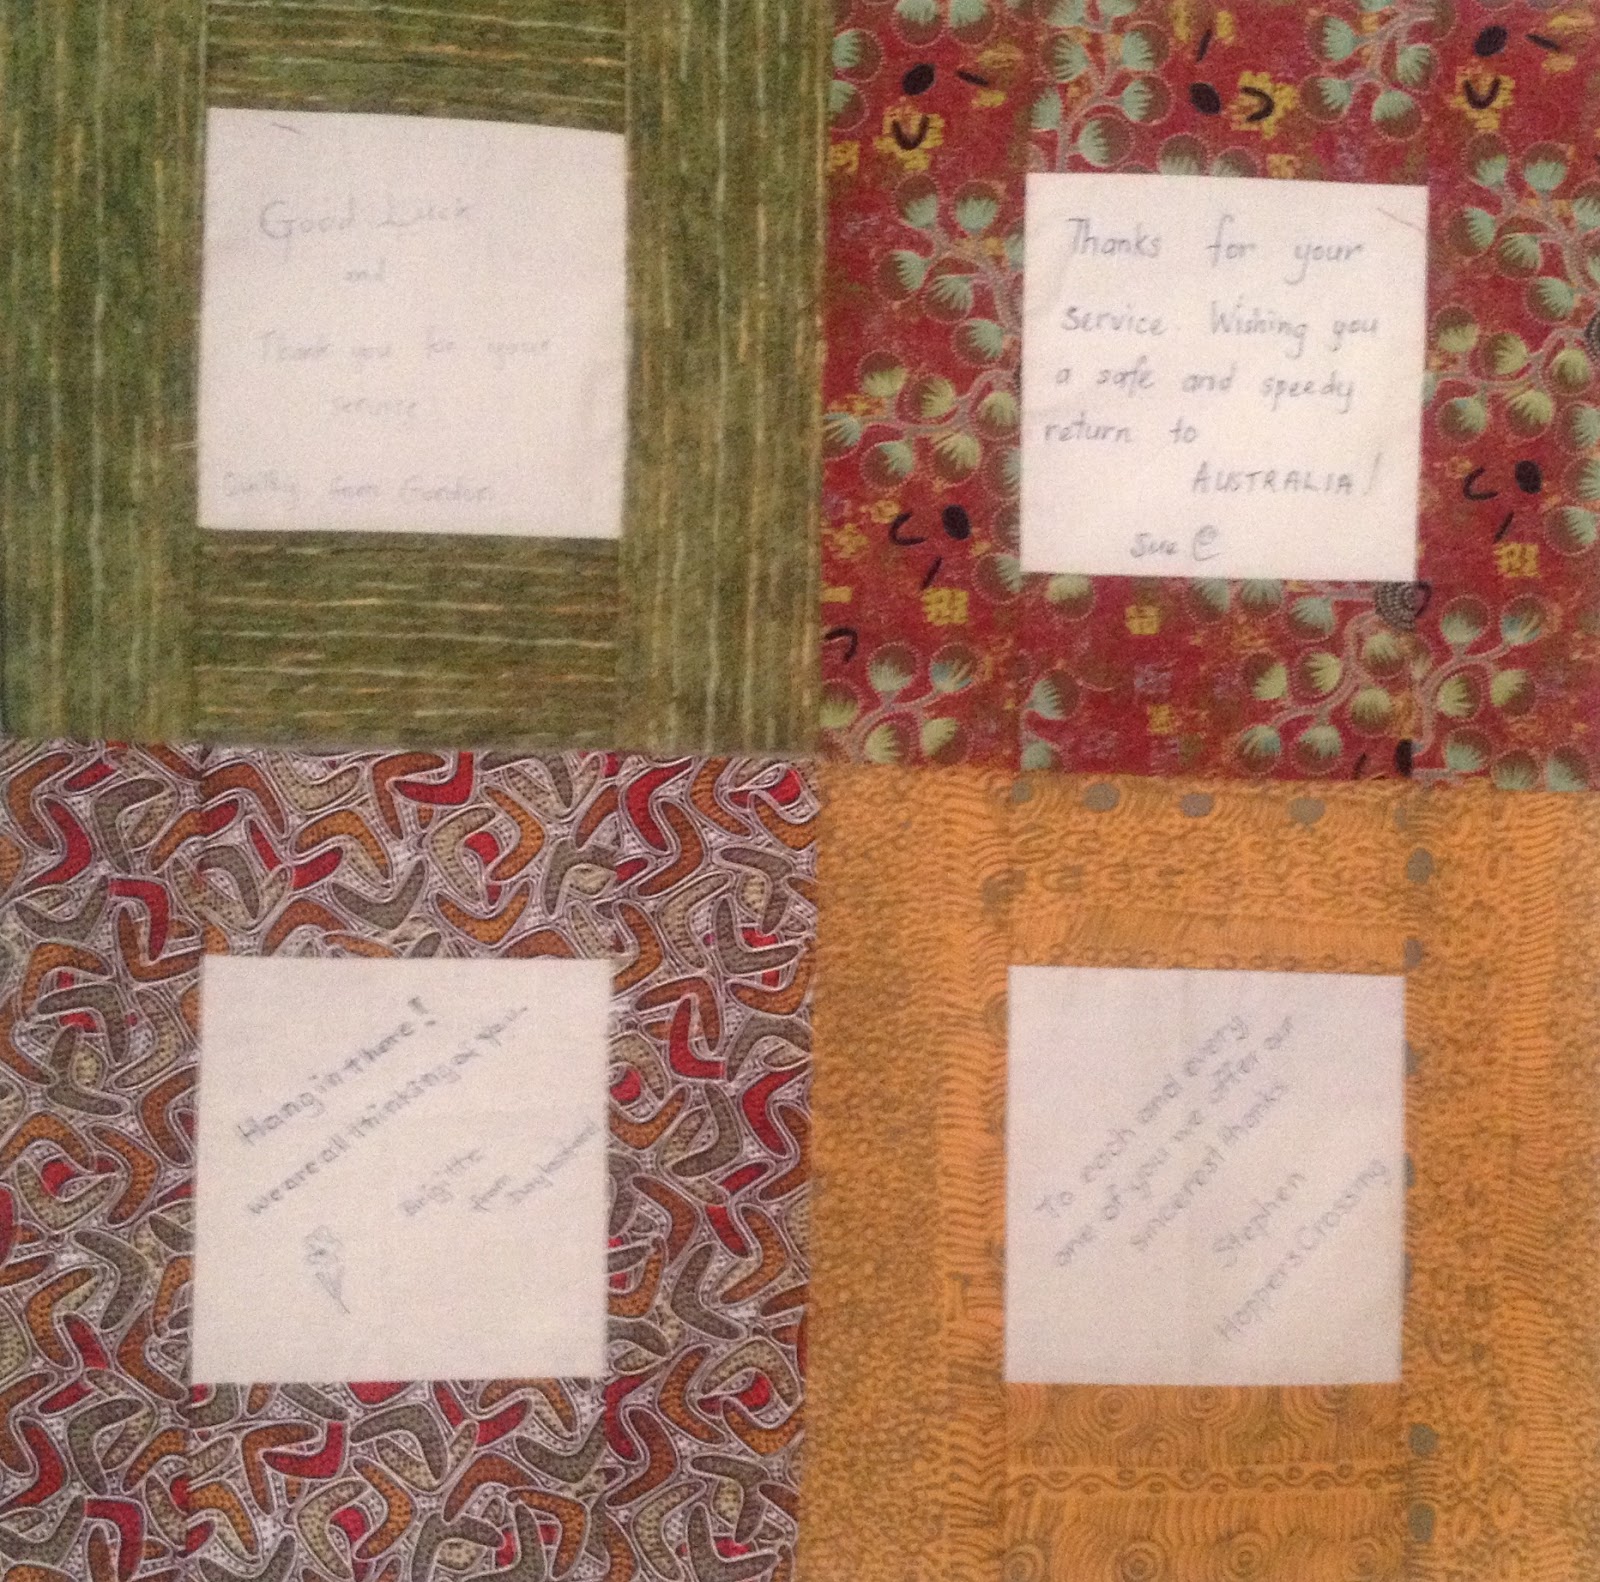 Good Luck
and
Thank you for your
service
from Gordon
Thanks for your
service. Wishing you
a safe and speedy
return to
AUSTRALIA!
Sue
Hang in there!
we are all thinking of you.
Brigitte
from
To each and every
one of you we offer our
sincerest thanks
Stephen
Hoppers Crossing